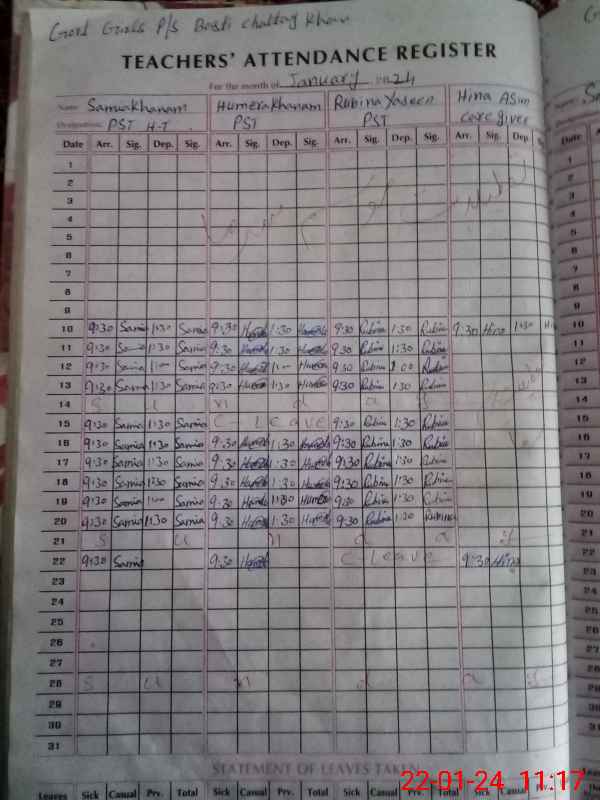 Govt Girls P/S Basti Chattag Khan
TEACHERS' ATTENDANCE REGISTER
For the month of January 2024
Name Samia Khanam Humera Khanam Rubina Yaseen Hina Asim
Designation PST H.T. PST PST care giver
Date Arr. Sig. Dep. Sig. Arr. Sig. Dep. Sig. Arr. Sig. Dep. Sig. Arr. Sig. Dep.
1
2
3
4
5
6
7
8
9
10 9:30 Samia 1:30 Samia 9:30 1:30 9:30 Rubina 1:30 Rubina 9:30 Hina 1:30
11 9:30 1:30 Samia 9:30 1:30 9:30 Rubina 1:30 Rubina
12 9:30 Samia Samia 9:30 9:30 Rubina Rubina
13 9:30 Samia 1:30 Samia 9:30 1:30 9:30 Rubina 1:30 Rubina
14 S u n d a y
15 9:30 Samia 1:30 Samia C - Leave 9:30 Rubina 1:30 Rubina
16 9:30 Samia 1:30 Samia 9:30 1:30 9:30 Rubina 1:30 Rubina
17 9:30 Samia 1:30 Samia 9:30 1:30 9:30 Rubina 1:30 Rubina
18 9:30 Samia 1:30 Samia 9:30 1:30 9:30 Rubina 1:30 Rubina
19 9:30 Samia Samia 9:30 9:30 Rubina 1:30 Rubina
20 9:30 Samia 1:30 Samia 9:30 1:30 9:30 Rubina 1:30 Rubina
21 S u n d a y
22 9:30 Samia 9:30 C-Leave 9:30 Hina
23
24
25
26
27
28 S u n d a y
29
30
31
STATEMENT OF LEAVES TAKEN
Leaves Sick Casual Prv. Total Sick Casual Prv. Total Sick Casual Prv. Total Sick Casual Prv.
22-01-24 11:17